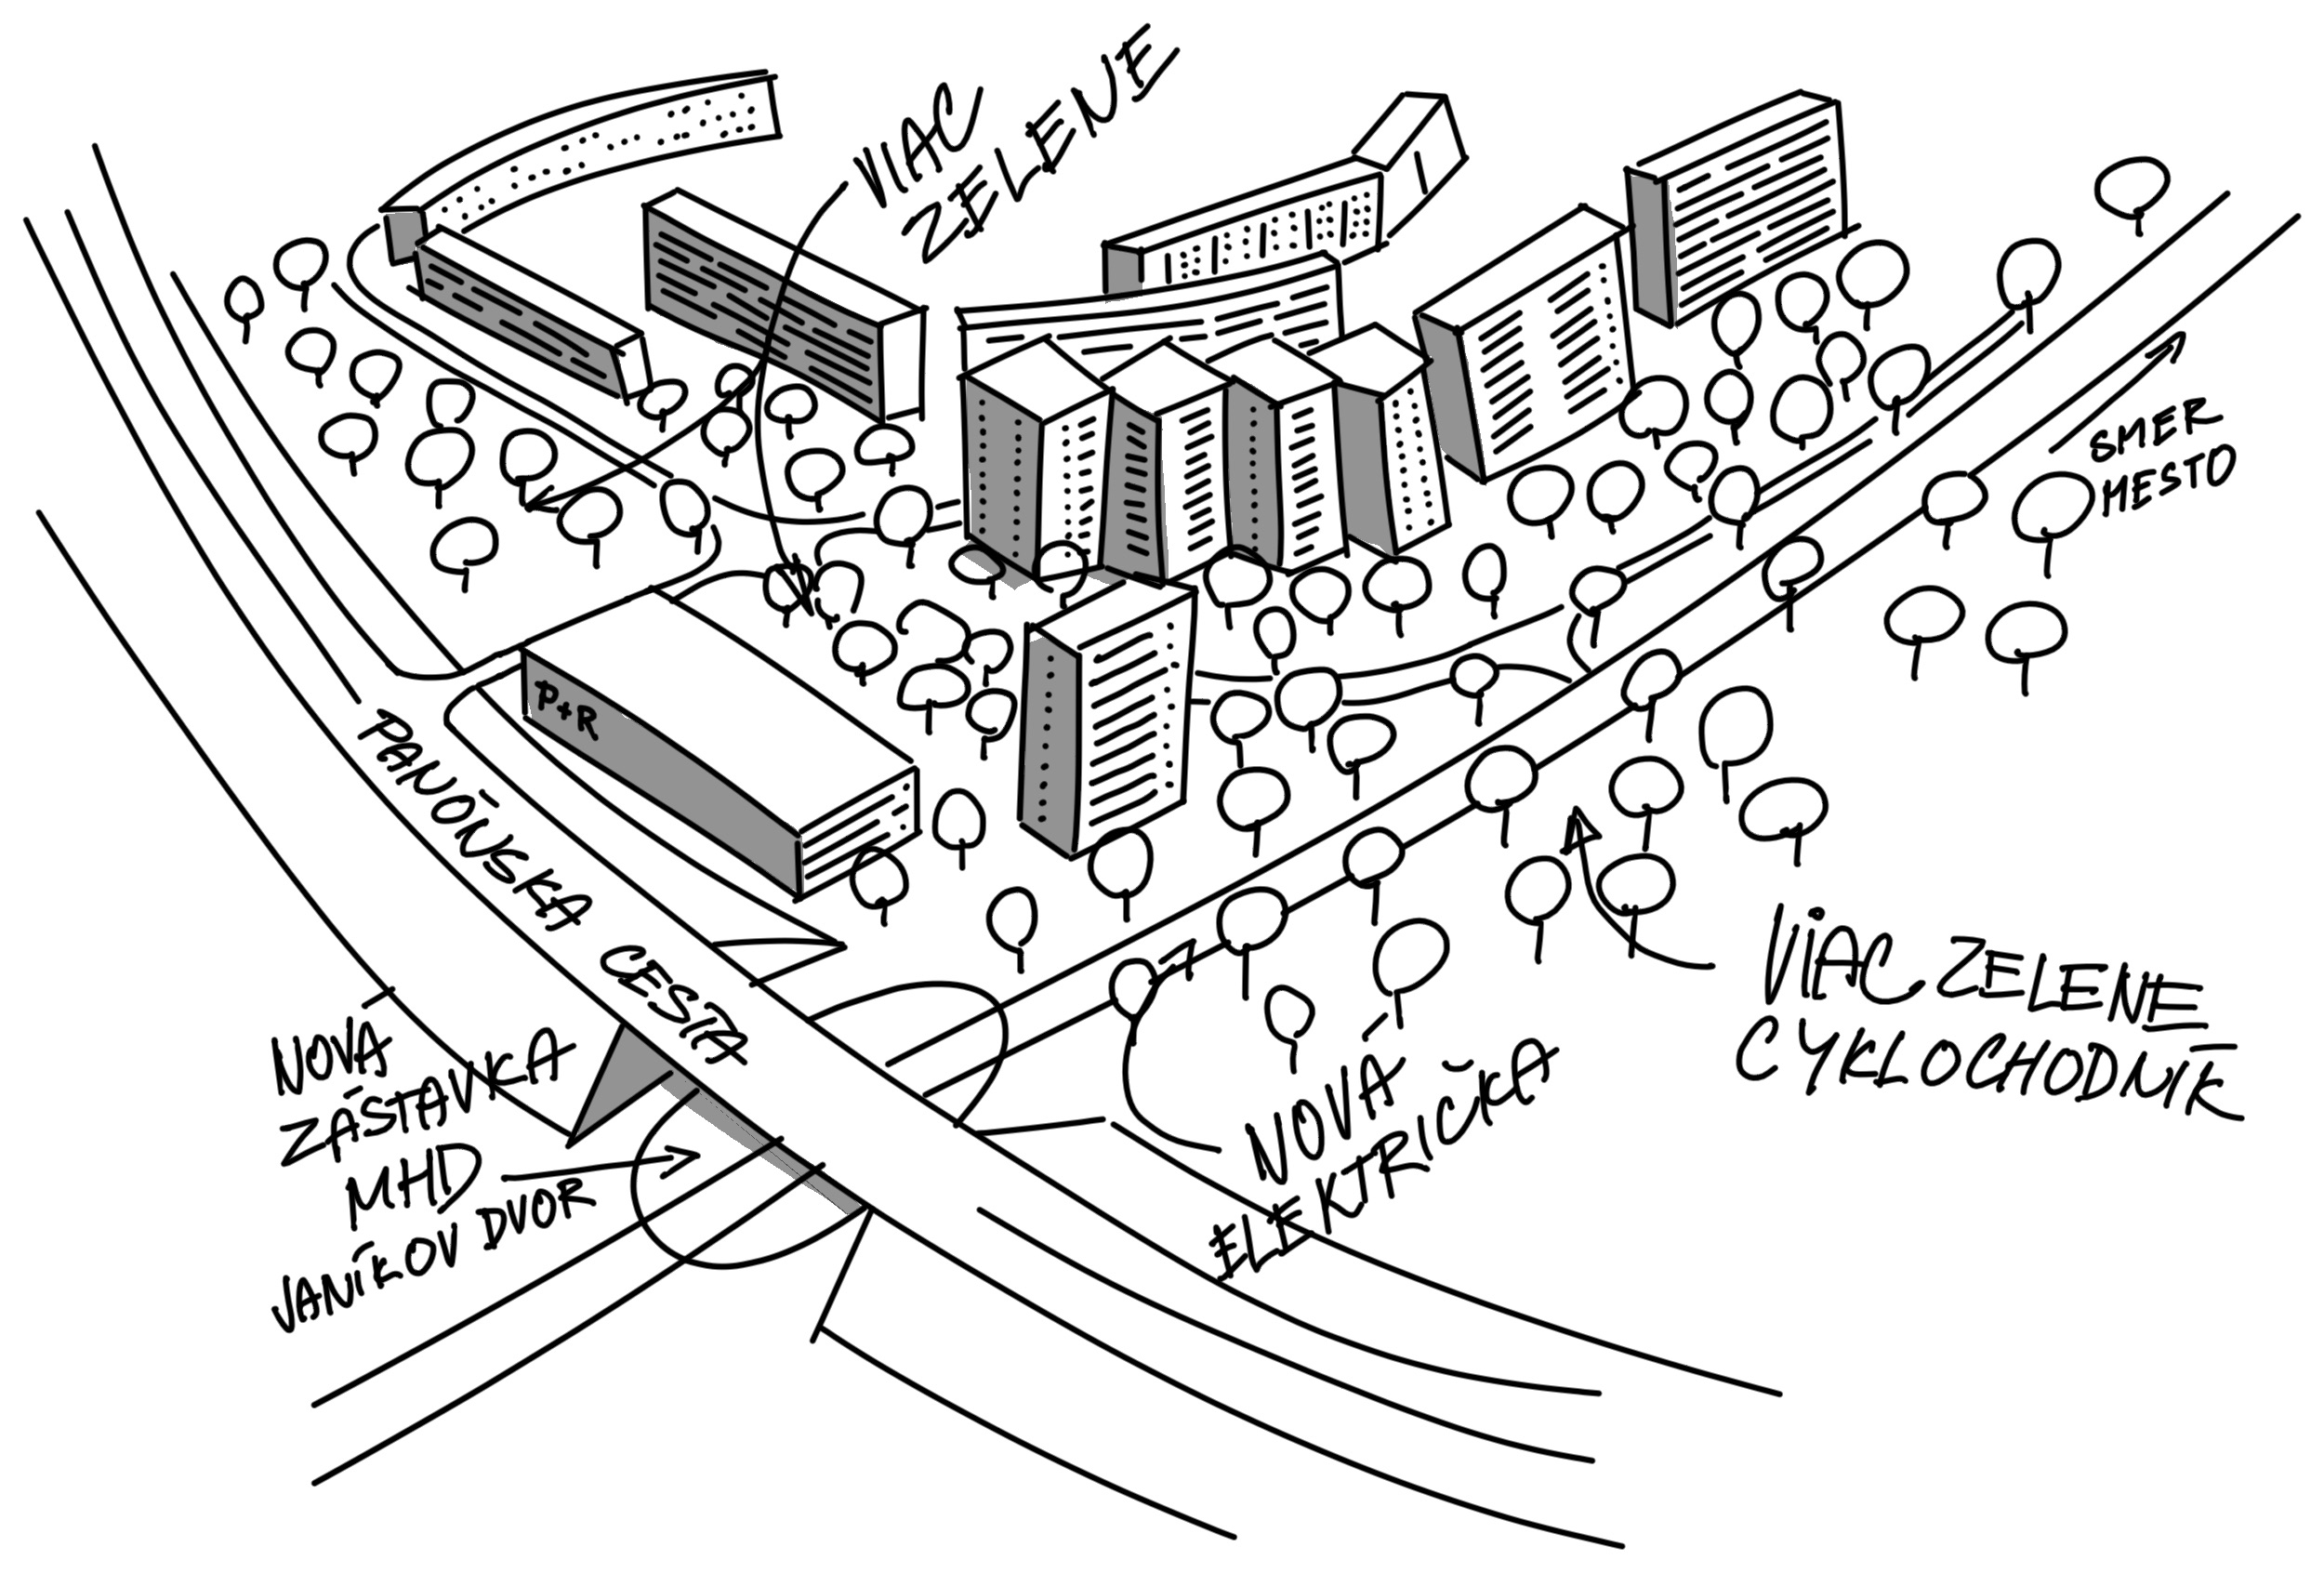 VIAC
ZELENE
SMER
MESTO
P+R
PANÓNSKA CESTA
VIAC ZELENE
CYKLOCHODNÍK
NOVÁ
ZÁSTAVKA
MHD
JANÍKOV DVOR
NOVÁ
ELEKTRIČKA